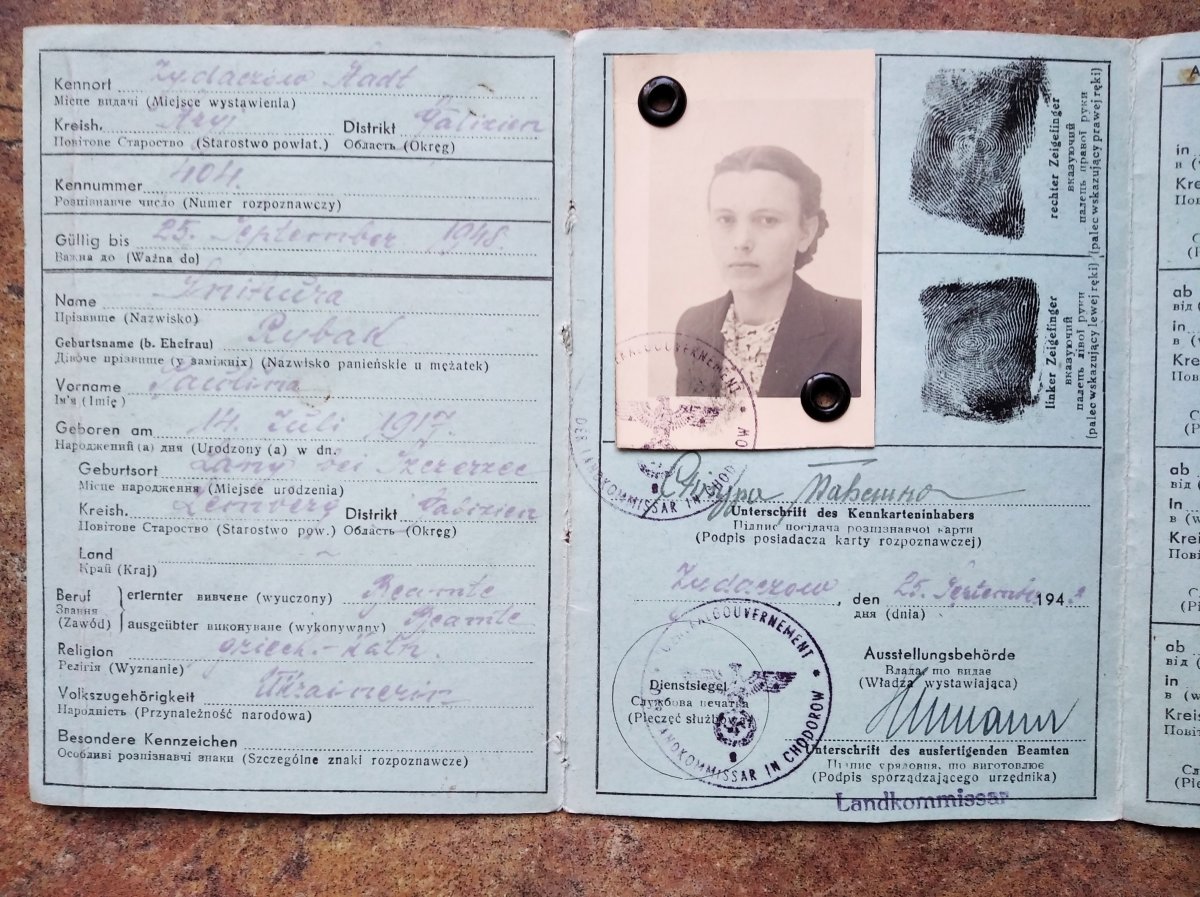 Kennort Zydaczow Stadt
Місце видачі (Miejsce wystawienia)
Kreish. Stryj Distrikt Galizien
Повітове Староство (Starostwo powiat.) Область (Okręg)
Kennummer 404.
Розпізнавче число (Numer rozpoznawczy)
Gültig bis 25. September 1948.
Важна до (Ważna do)
Name
Прізвище (Nazwisko)
Geburtsname (b. Ehefrau) Rybak
Дівоче прізвище (у заміжніх) (Nazwisko panieńskie u mężatek)
Vorname Paulina
Ім'я (Imię)
Geboren am 14. Juli 1917.
Народжений(а) дня (Urodzony (a) w dn.)
Geburtsort Lany bei Szczerzec
Місце народження (Miejsce urodzenia)
Kreish. Lemberg Distrikt Galizien
Повітове Староство (Starostwo pow.) Область (Okręg)
Land ~
Край (Kraj)
Beruf erlernter вивчене (wyuczony) Beamte
Звання
(Zawód) ausgeübter виконуване (wykonywany) Beamte
Religion griech.-Kath.
Релігія (Wyznanie)
Volkszugehörigkeit Ukrainerin
Народність (Przynależność narodowa)
Besondere Kennzeichen
Особливі розпізнавчі знаки (Szczególne znaki rozpoznawcze)
GENERALGOUVERNEMENT
DER LANDKOMMISSAR IN CHODOROW
rechter Zeigefinger
вказуючий
палець правої руки
(palec wskazujący prawej ręki)
linker Zeigefinger
вказуючий
палець лівої руки
(palec wskazujący lewej ręki)
Unterschrift des Kennkarteninhabers
Підпис посідача розпізнавчої карти
(Podpis posiadacza karty rozpoznawczej)
Zydaczow, den 25. September 194
дня (dnia)
Ausstellungsbehörde
Влада, що видає
(Władza wystawiająca)
Dienstsiegel
Службова печатка
(Pieczęć służbowa)
GENERALGOUVERNEMENT
LANDKOMMISSAR IN CHODOROW
Unterschrift des ausfertigenden Beamten
Підпис урядовця, що виготовлює
(Podpis sporządzającego urzędnika)
Landkommissar
A
in
в (
Kre
Пов
ab
від (
in
в (
Kre
Пов
ab
від
In
в (
Kreis
Пові
ab
від
in
в (
Kreis